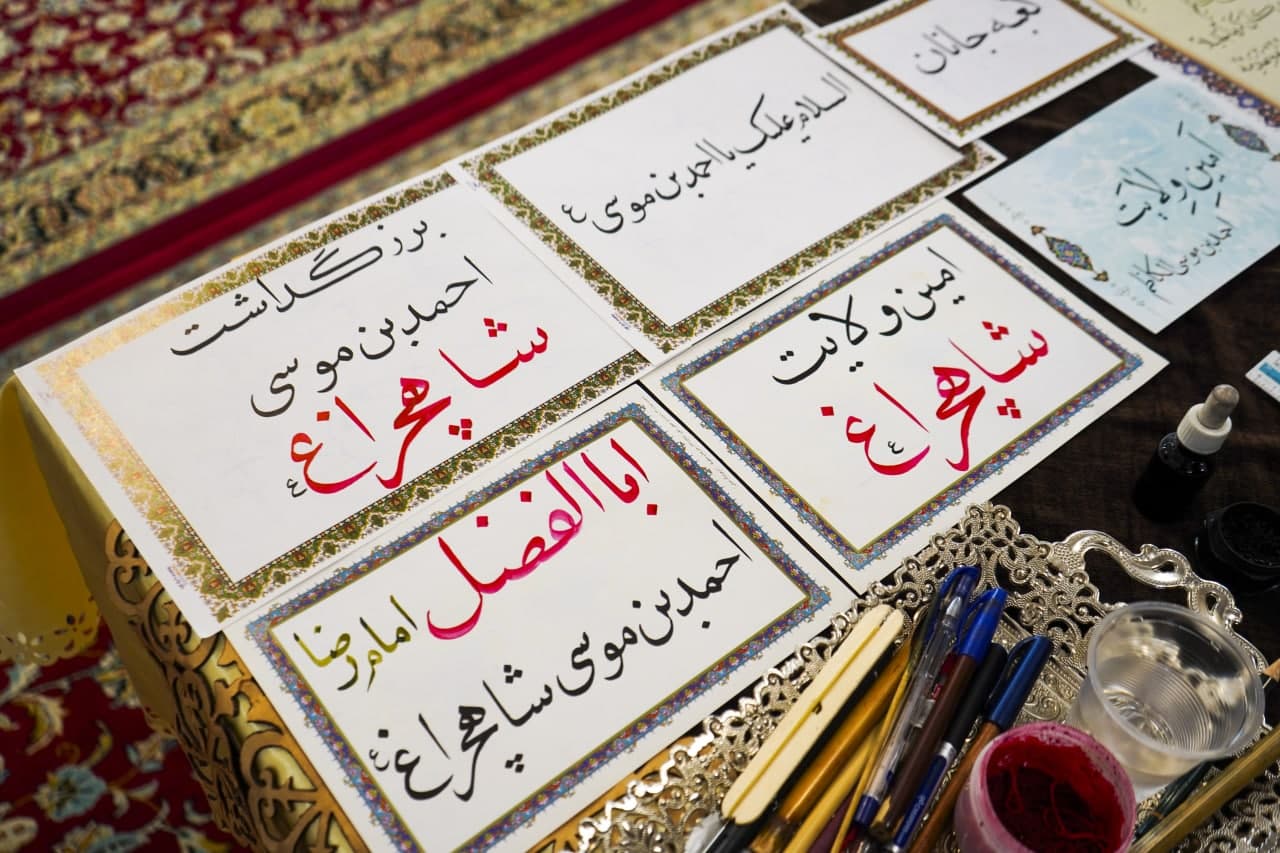 کعبه جانان
السلام علیک یا احمد بن موسی ع
امین ولایت
احمد بن موسی الکاظم
بزرگداشت
احمد بن موسی
شاهچراغ ع
امین ولایت
شاهچراغ ع
اباالفضل
امام رضا
احمد بن موسی شاهچراغ ع